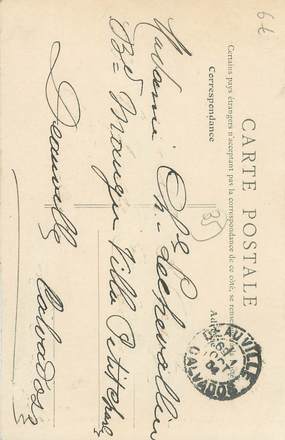 6€
CARTE POSTALE
Certains pays étrangers n'acceptant pas la correspondance de ce côté, se rense
Correspondance
Ad
35
Madame Ch. Lechevallier
Bd Villa
Deauville
Calvados
AUVILLE
04
CALVADOS